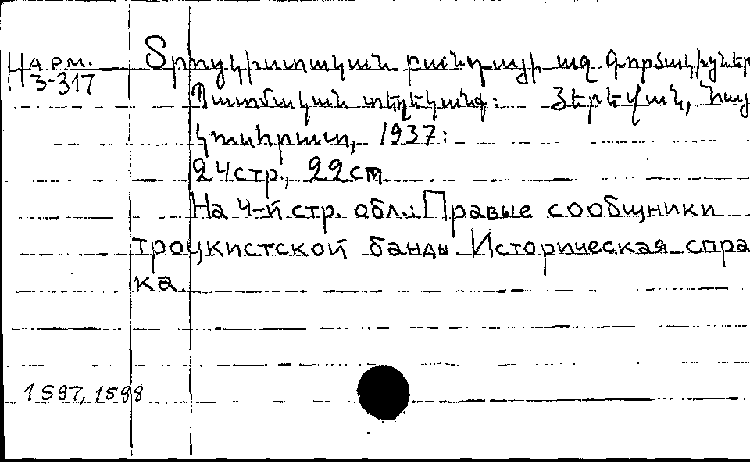 На арм.
3-317
Տրոցկիստական բանդայի աջ գործակիցներ
Պատմական տեղեկանք: Յերեվան, Հայ
կուսհրատ, 1937:
24 стр., 22 cm
На 4-й стр. обл.: Правые сообщники
троцкистской банды. Историческая спра
ка.
1597, 1598